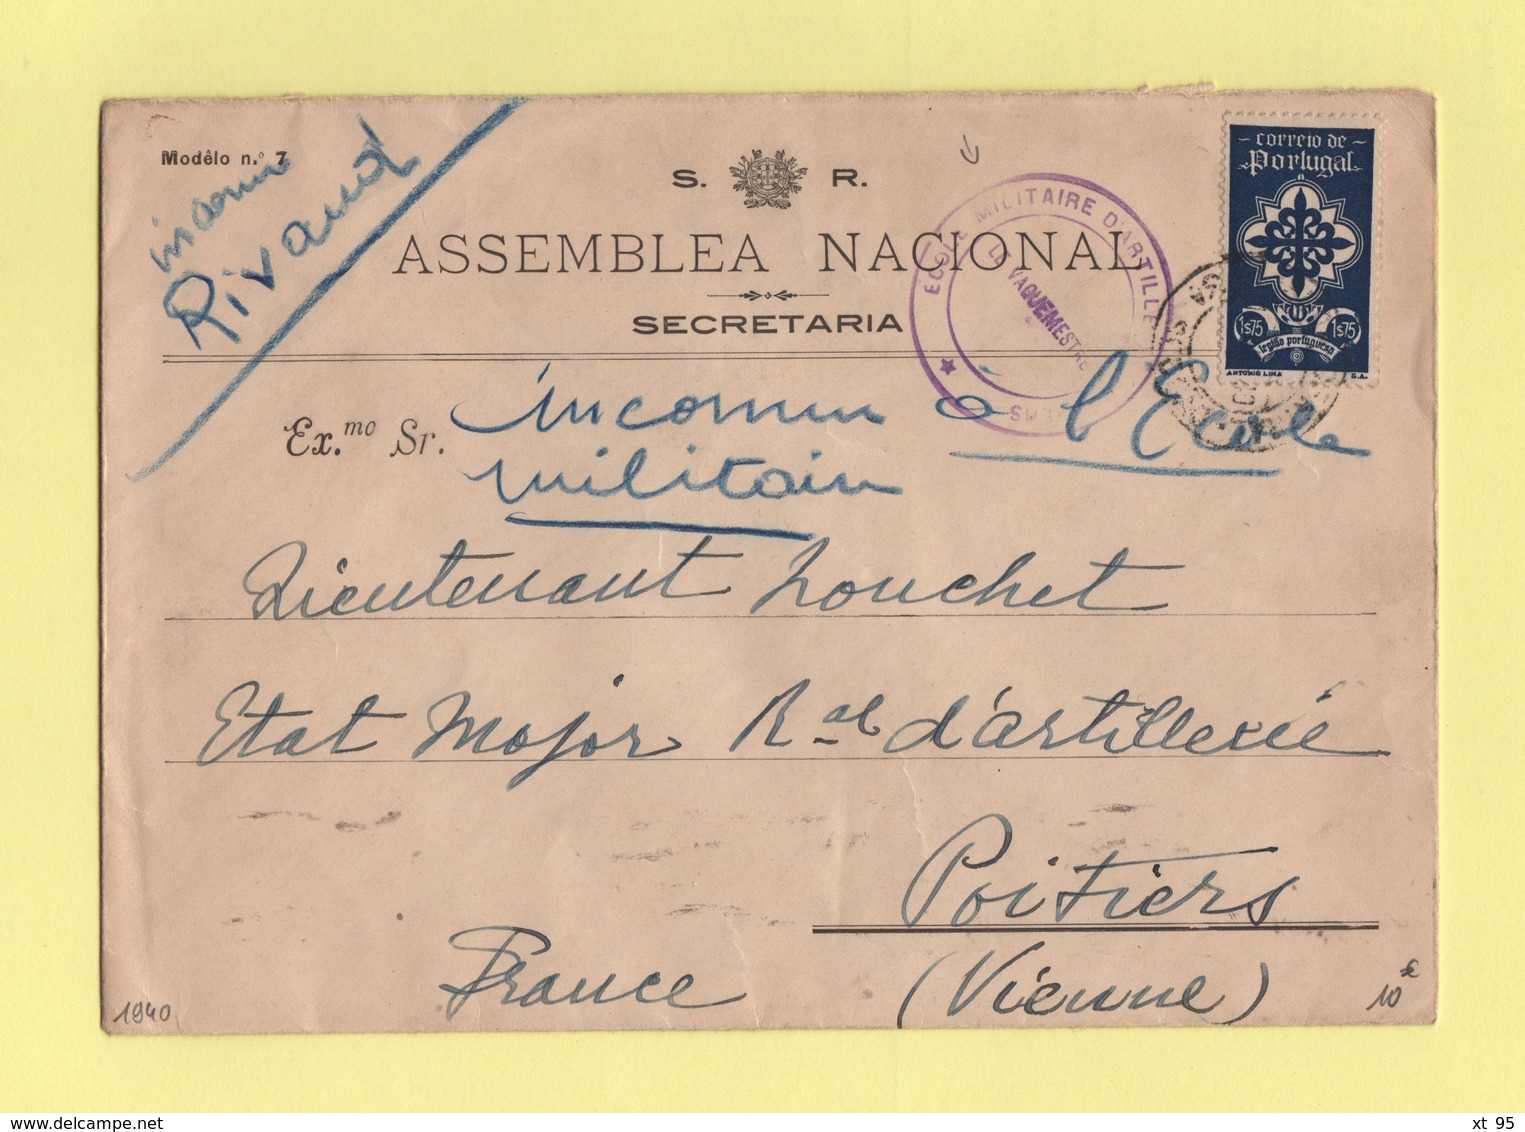 Modêlo n.º 7
inconnu
Rivaud
S. R.
ASSEMBLEA NACIONAL
SECRETARIA
ECOLE MILITAIRE D'ARTILLERIE
LE VAGUEMESTRE
correio de
Portugal
1$75 1$75
legião portuguesa
ANTONIO LINA
Ex.mo Sr. inconnu à l'Ecole
militaire
Lieutenant Louchet
Etat Major Ral d'artillerie
Poitiers
France (Vienne)
1940
10 €
xt 95